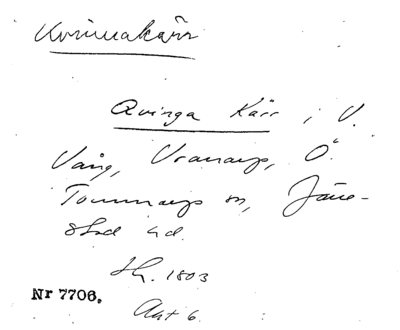 Kvinnakärr
Qvinga Kärr i V.
Vång, Vranarp, Ö.
Tommarps sn, Järe-
stad hd.
Sk. 1803
Nr 7706.
Akt 6